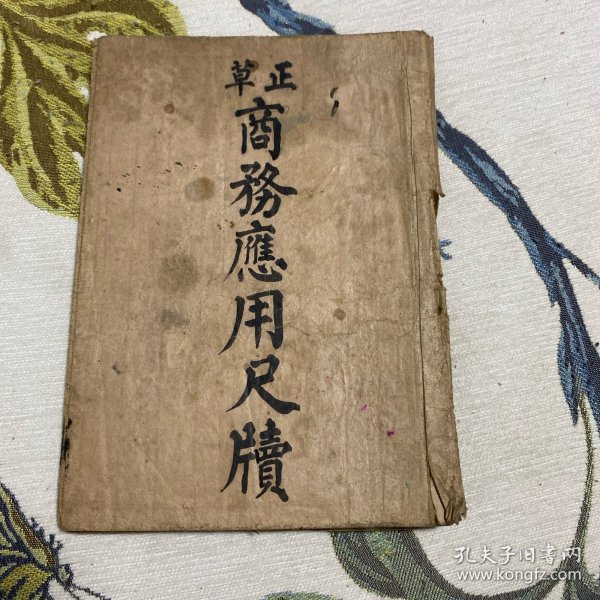 正草
商務應用尺牘
孔夫子旧書网
www.kongfz.com